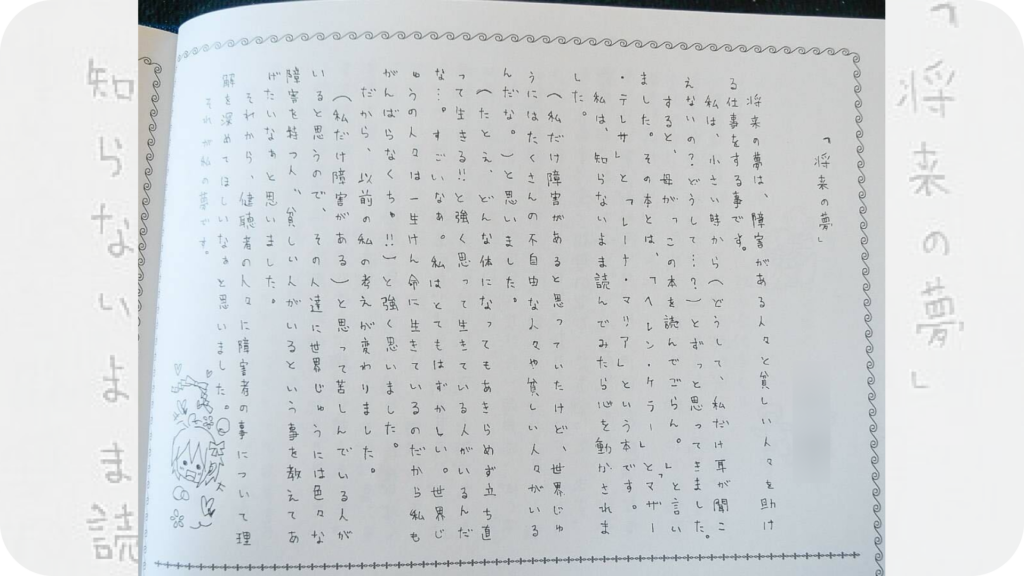 「将来の夢」
将来の夢は、障害がある人々と貧しい人々を助け
る仕事をする事です。
私は、小さい時から(どうして、私だけ耳が聞こ
えないの?どうして…?)とずっと思ってきました。
すると、母が「この本を読んでごらん。」と言い
ました。その本とは、「ヘレン・ケラー」と「マザー
・テレサ」と「フレート・マリア」という本です。
私は、知らないよま読んでみたら心を動かされま
した。
(私だけ障害があると思っていたけど、世界じゅ
うにはたくさんの不自由な人々や貧しい人々がいる
んだな。)と思いました。
(たとえ、どんな体になってもあきらめず立ち直
って生きる!!と強く思って生きている人がいるんだ
な…。すごいなぁ。私はとてもはずかしい。世界じ
ゅうの人々は一生けん命に生きているのだから私も
がんばらなくちゃ!!)と強く思いました。
だから、以前の私の考えが変わりました。
(私だけ障害がある)と思って苦しんでいる人が
いると思うので、その人達に世界じゅうには色々な
障害を持つ人、貧しい人がいるという事を教えてあ
げたいなぁと思いました。
それから、健聴者の人々に障害者の事について理
解を深めてほしいなぁと思いました。
それが私の夢です。
「将来の夢」
知らないよま読